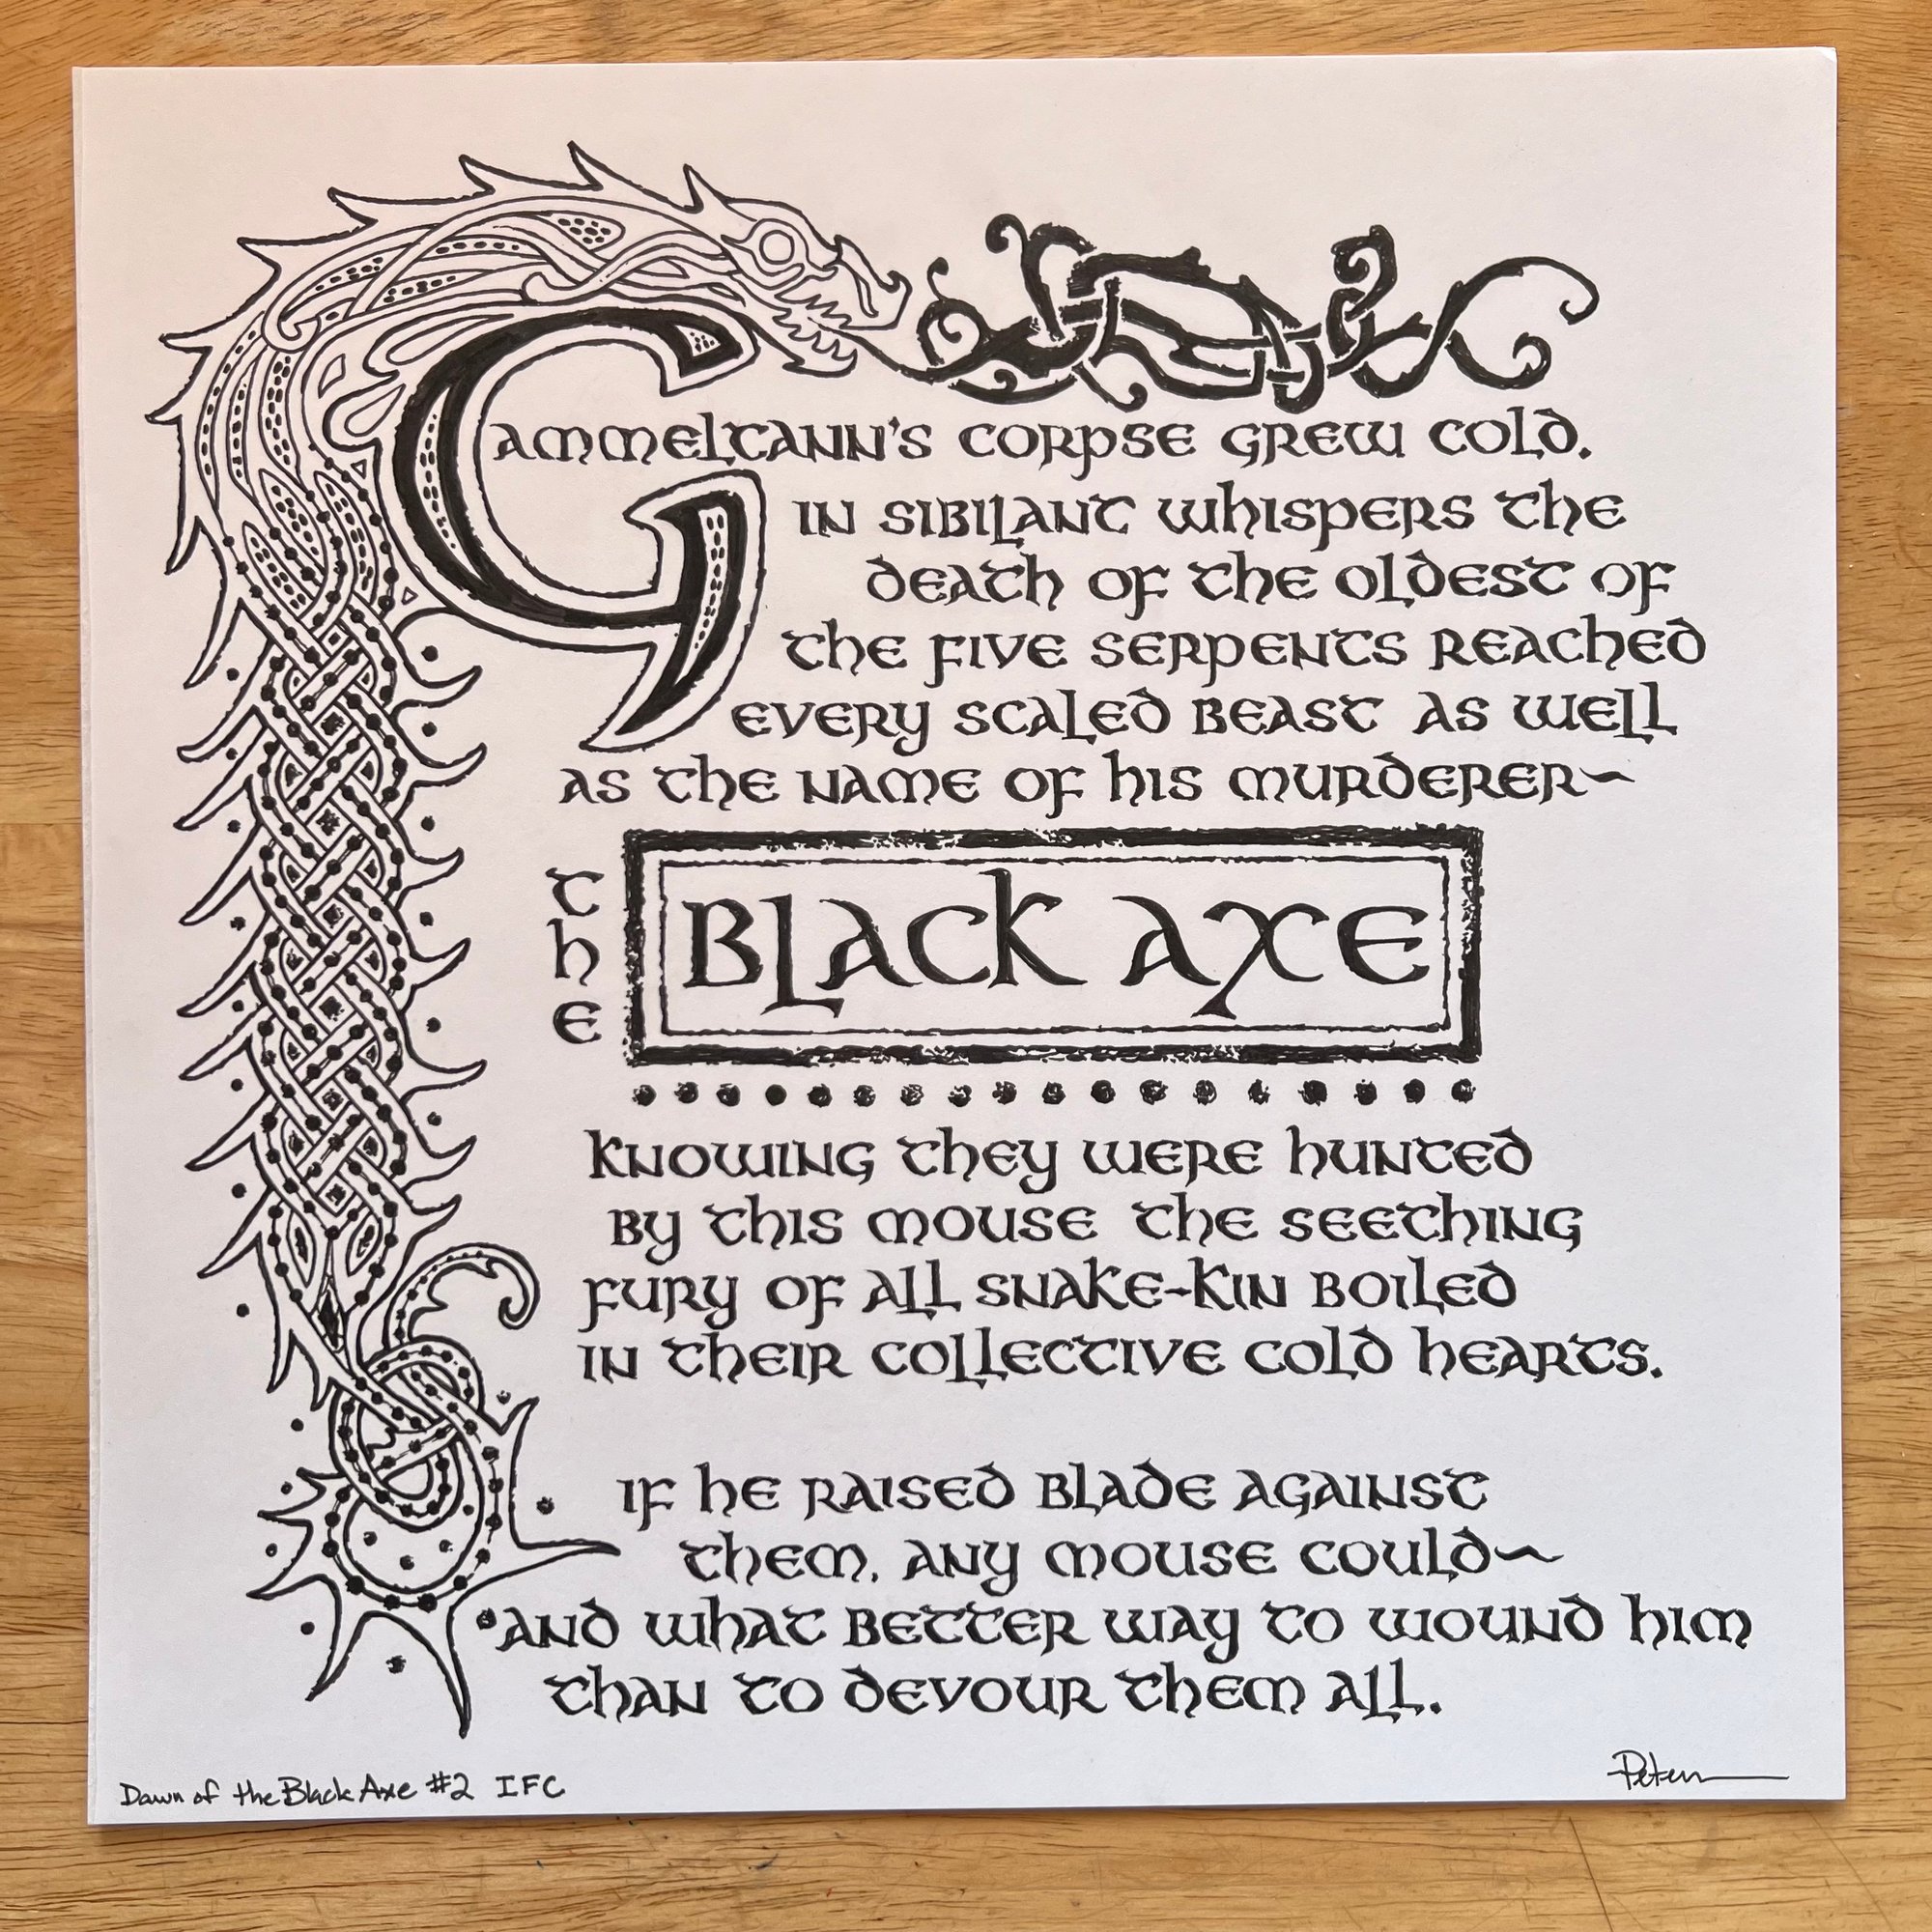 Gammeltann's corpse grew cold.
in sibilant whispers the
death of the oldest of
the five serpents reached
every scaled beast as well
as the name of his murderer~
the BLACK AXE
Knowing they were hunted
by this mouse the seething
fury of all snake-kin boiled
in their collective cold hearts.
If he raised blade against
them, any mouse could~
and what better way to wound him
than to devour them all.
Dawn of the Black Axe #2 IFC
Petersen